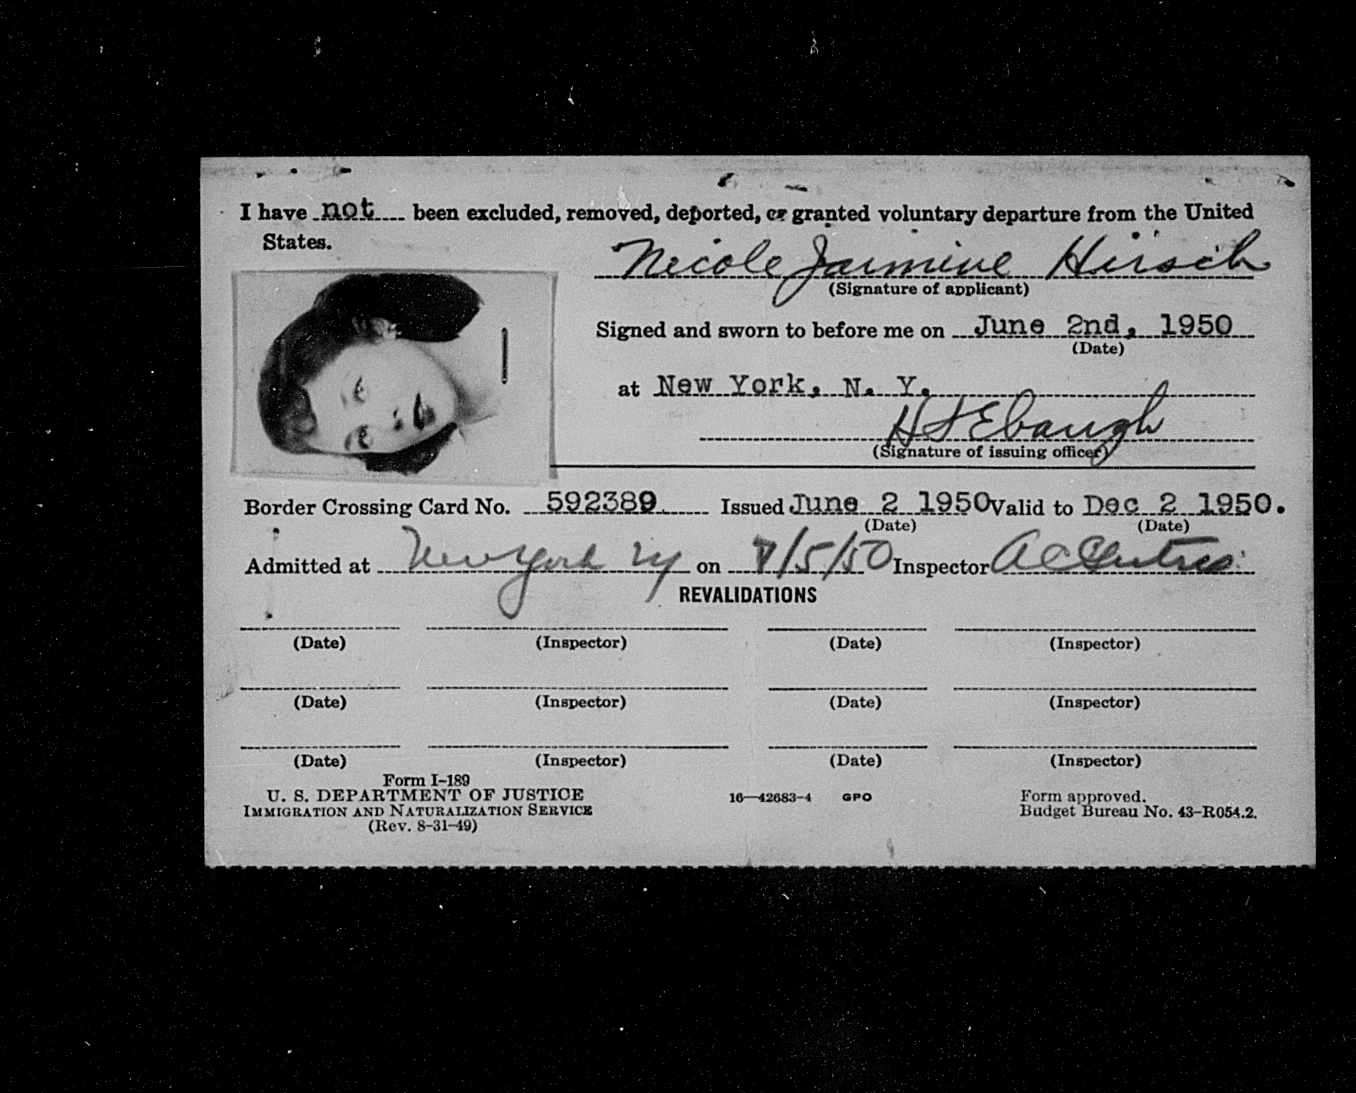 I have not been excluded, removed, deported, or granted voluntary departure from the United
States.
Nicole Jasmine Hirsch
(Signature of applicant)
Signed and sworn to before me on June 2nd, 1950
(Date)
at New York, N. Y.
H F Ebaugh
(Signature of issuing officer)
Border Crossing Card No. 592389 Issued June 2 1950 Valid to Dec 2 1950.
(Date) (Date)
Admitted at New York Ny on 8/5/50 Inspector
REVALIDATIONS
(Date) (Inspector) (Date) (Inspector)
(Date) (Inspector) (Date) (Inspector)
(Date) (Inspector) (Date) (Inspector)
Form I-189
U. S. DEPARTMENT OF JUSTICE 16—42683-4 GPO Form approved.
IMMIGRATION AND NATURALIZATION SERVICE Budget Bureau No. 43-R054.2.
(Rev. 8-31-49)